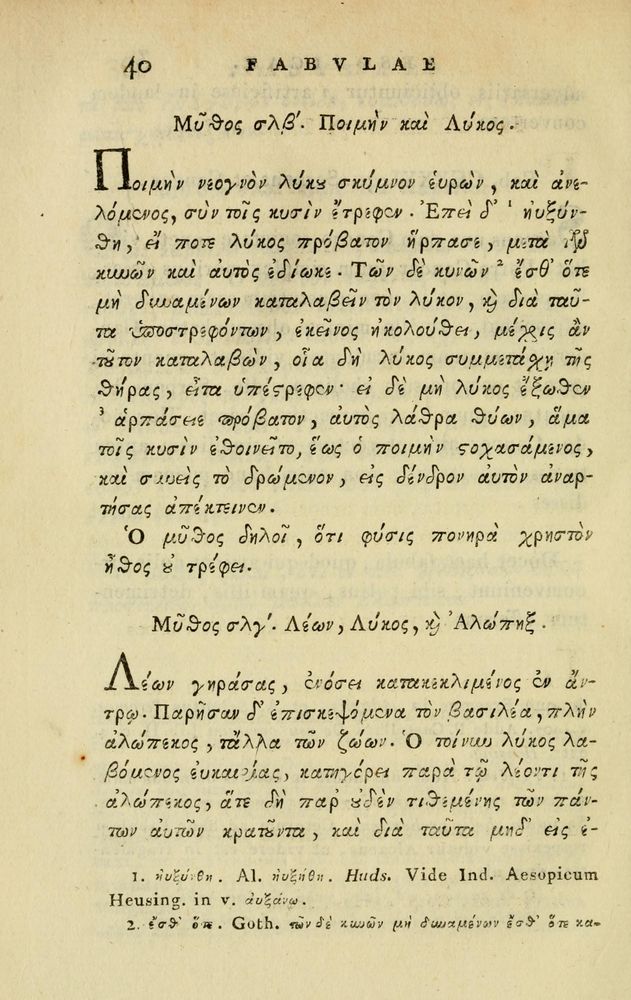 40 FABVLAE
Μῦθος σλβ'. Ποιμὴν καὶ Λύκος.
Ποιμὴν νεογνὸν λύκου σκύμνον εὑρὼν, καὶ ἀνε-
λόμενος, σὺν τοῖς κυσὶν ἔτρεφεν. Ἐπεὶ δ' ¹ ηὐξύν-
θη, εἴ ποτε λύκος πρόβατον ἥρπασε, μετὰ τῶν
κυνῶν καὶ αὐτὸς ἐδίωκε. Τῶν δὲ κυνῶν ² ἔσθ' ὅτε
μὴ δυναμένων καταλαβεῖν τὸν λύκον, καὶ διὰ ταῦ-
τα ὑποστρεφόντων, ἐκεῖνος ἠκολούθει, μέχρις ἂν
τοῦτον καταλαβὼν, οἷα δὴ λύκος συμμετάσχῃ τῆς
θήρας, εἶτα ὑπέστρεφεν· εἰ δὲ μὴ λύκος ἔξωθεν
³ ἁρπάσειε πρόβατον, αὐτὸς λάθρα θύων, ἅμα
τοῖς κυσὶν ἐθοινεῖτο, ἕως ὁ ποιμὴν στοχασάμενος,
καὶ συνεὶς τὸ δρώμενον, εἰς δένδρον αὐτὸν ἀναρ-
τήσας ἀπέκτεινεν.
Ὁ μῦθος δηλοῖ, ὅτι φύσις πονηρὰ χρηστὸν
ἦθος οὐ τρέφει.
Μῦθος σλγ'. Λέων, Λύκος, καὶ Ἀλώπηξ.
Λέων γηράσας, ἐνόσει κατακεκλιμένος ἐν ἄν-
τρῳ. Παρῆσαν δ' ἐπισκεψόμενα τὸν βασιλέα, πλὴν
ἀλώπεκος, τἄλλα τῶν ζώων. Ὁ τοίνυν λύκος λα-
βόμενος εὐκαιρίας, κατηγόρει παρὰ τῷ λέοντι τῆς
ἀλώπεκος, ἅτε δὴ παρ' οὐδὲν τιθεμένης τῶν πάν-
των αὐτῶν κρατοῦντα, καὶ διὰ ταῦτα μηδ' εἰς ἐ-
1. ηὐξύνθη. Al. ηὐξήθη. Huds. Vide Ind. Aesopicum
Heusing. in v. αὐξάνω.
2. ἔσθ' ὅτε. Goth. τῶν δὲ κυνῶν μὴ δυναμένων ἔσθ' ὅτε κα-